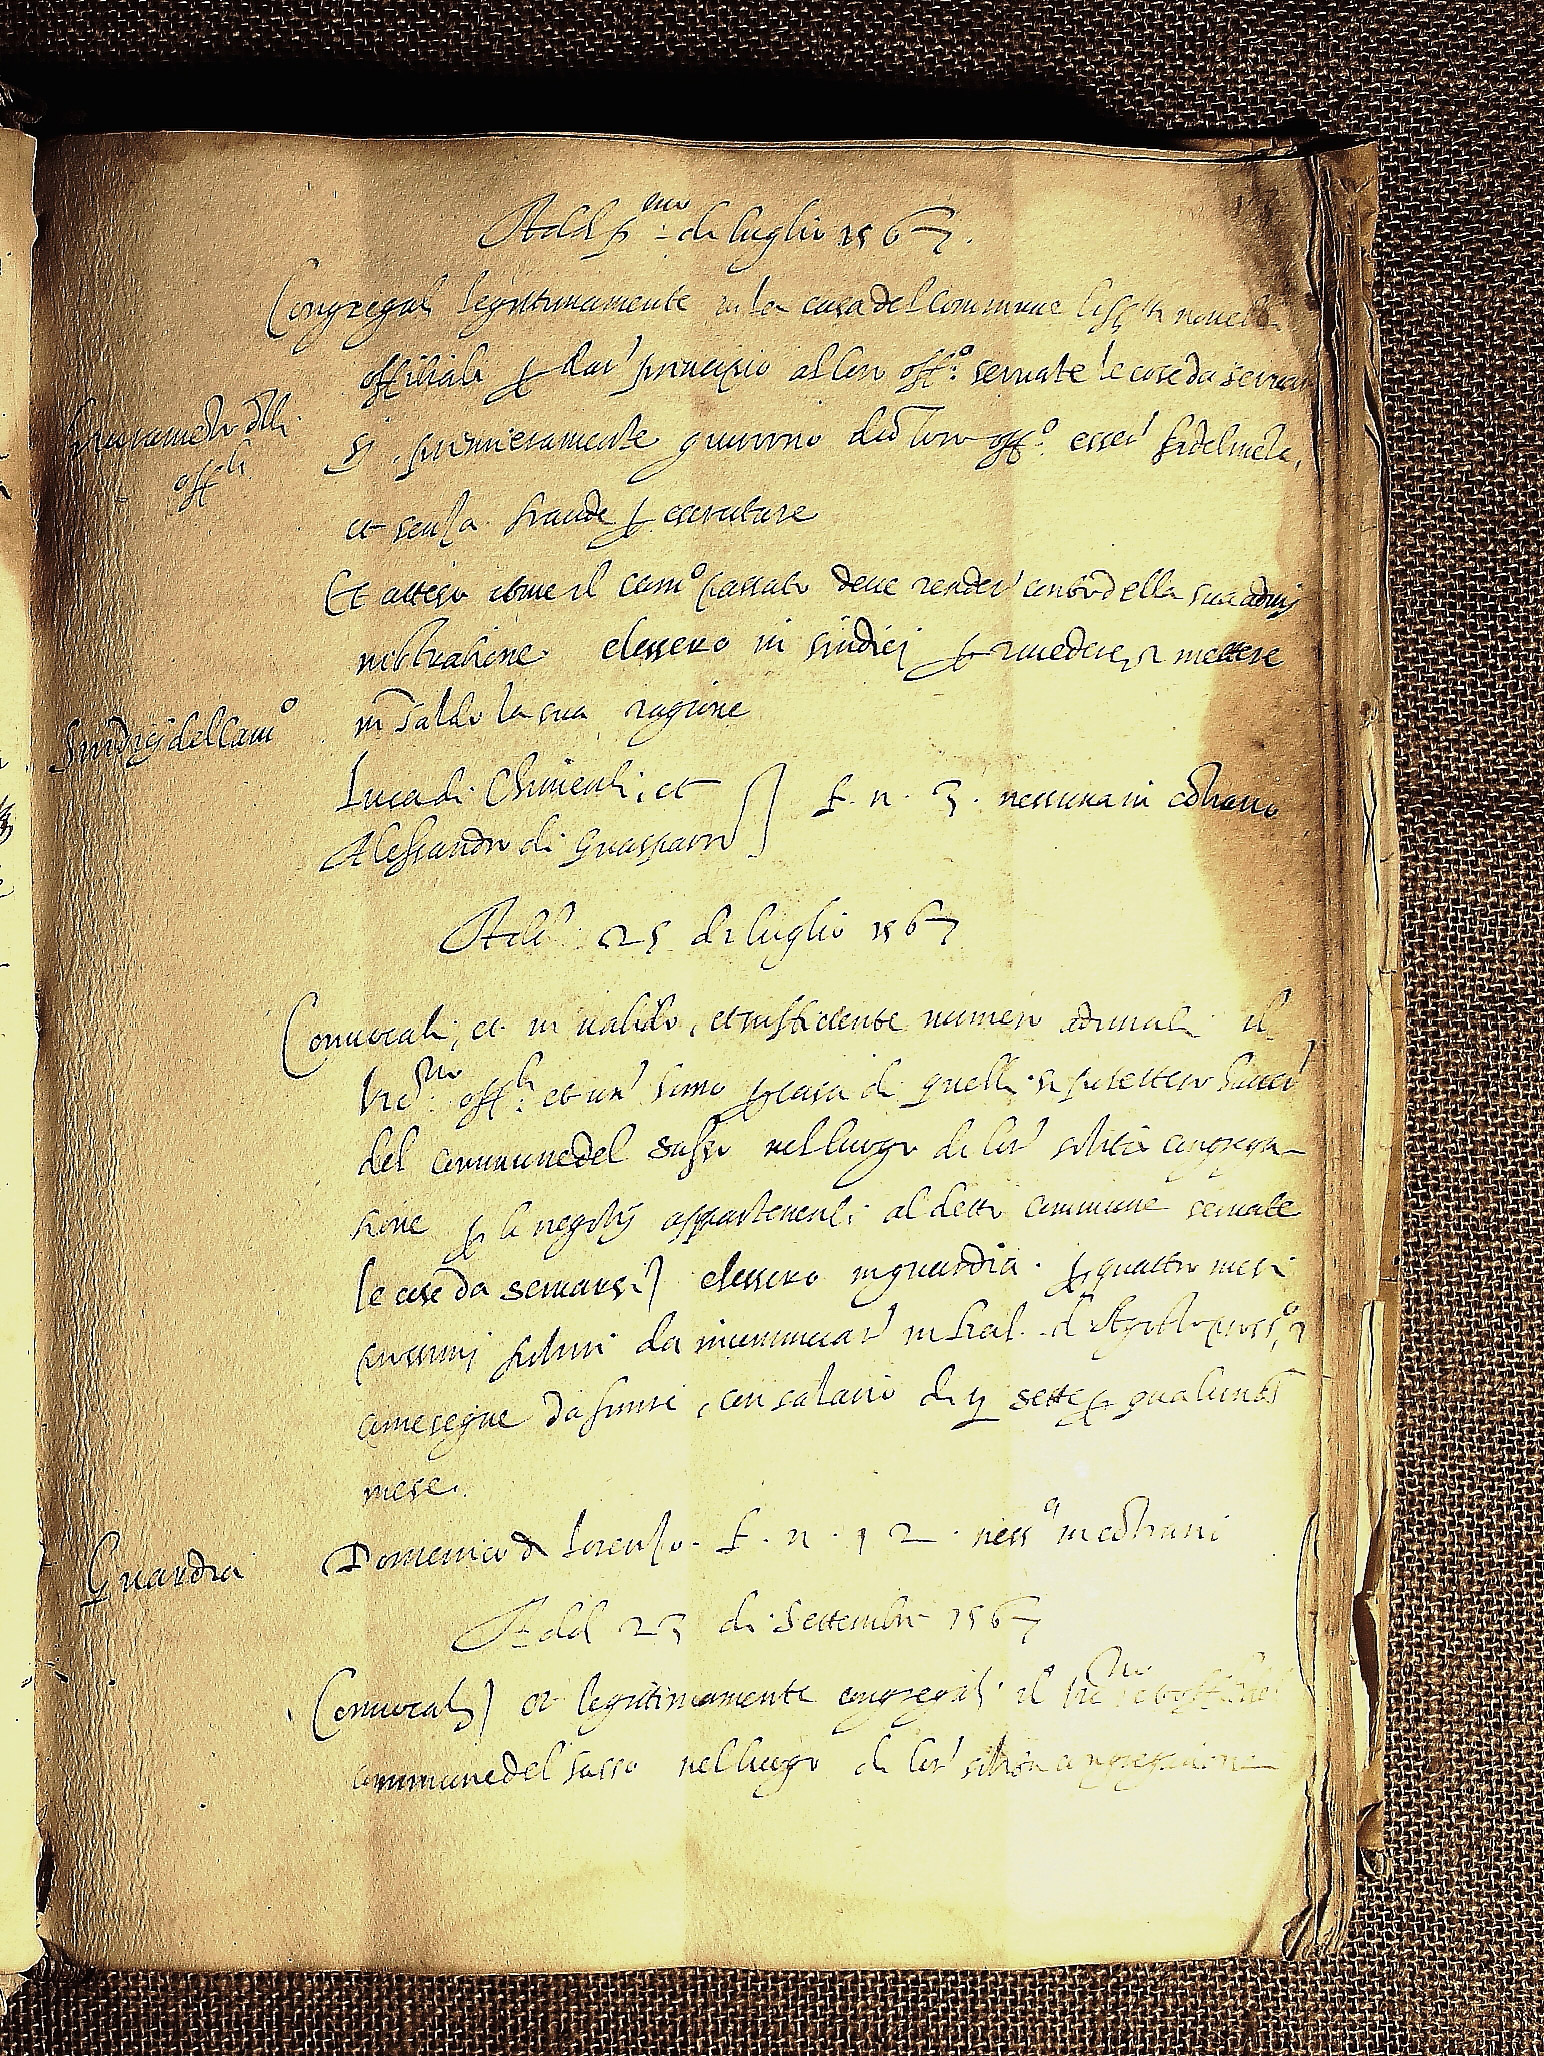 Adi p.mo di luglio 1567.
Congregati legittimamente in la casa del Commune li
offitiali p dar' principio al loro off.o servate le cose da servar
Giuramento delli off.li
si. primieramente giurorno di loro off.o esser' fidelmete,
et senza fraude p esercitare
Et atteso come il cam.o passato deve render' conto della sua admi
nistratione elessero in sindici p rivedere, et mettere
Sindici del cam.o
in saldo la sua ragione
Luca di Chimenti, et
Alessandro di Guasparri } f. n. 3. nessuna in cōtrario
Adi 25 di luglio 1567
Convocati, et in valido, et sufficiente numero adunati il
Vic.rio off.li et un' homo p casa di quelli
del commune del Sasso nel luogo di lor' solita congrega-
tione p li negotij appartenenti al detto commune servate
le cose da servarsi elessero in guardia. p quattro mesi
prossimi futuri da incominciar' in kal. d'Agosto pross.o, et
come segue da finire, con salario di sette p qualunche
mese.
Guardia
Domenico di Lorenzo. f. n. 12. ness.a in cōtrario
Adi 23 di Settembre 1567
Convocati et legittimamente congregati il Vic.rio et off.li del
commune del Sasso nel luogo di lor' solita congregatione